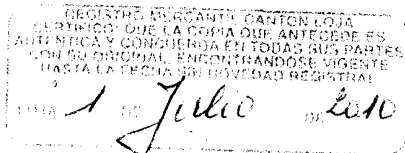 REGISTRO MERCANTIL CANTON LOJA
CERTIFICO: QUE LA COPIA QUE ANTECEDE ES
AUTENTICA Y CONCUERDA EN TODAS SUS PARTES
CON SU ORIGINAL, ENCONTRANDOSE VIGENTE
HASTA LA FECHA SIN NOVEDAD REGISTRAL
LOJA 1 DE Julio DE 2010